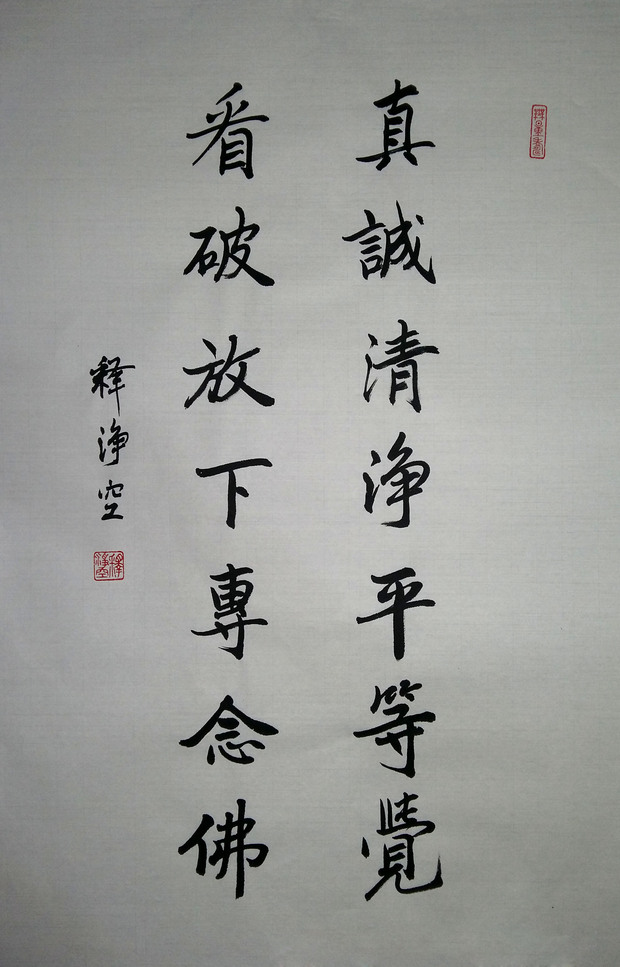 真誠清淨平等覺
看破放下專念佛
釋淨空
釋淨空